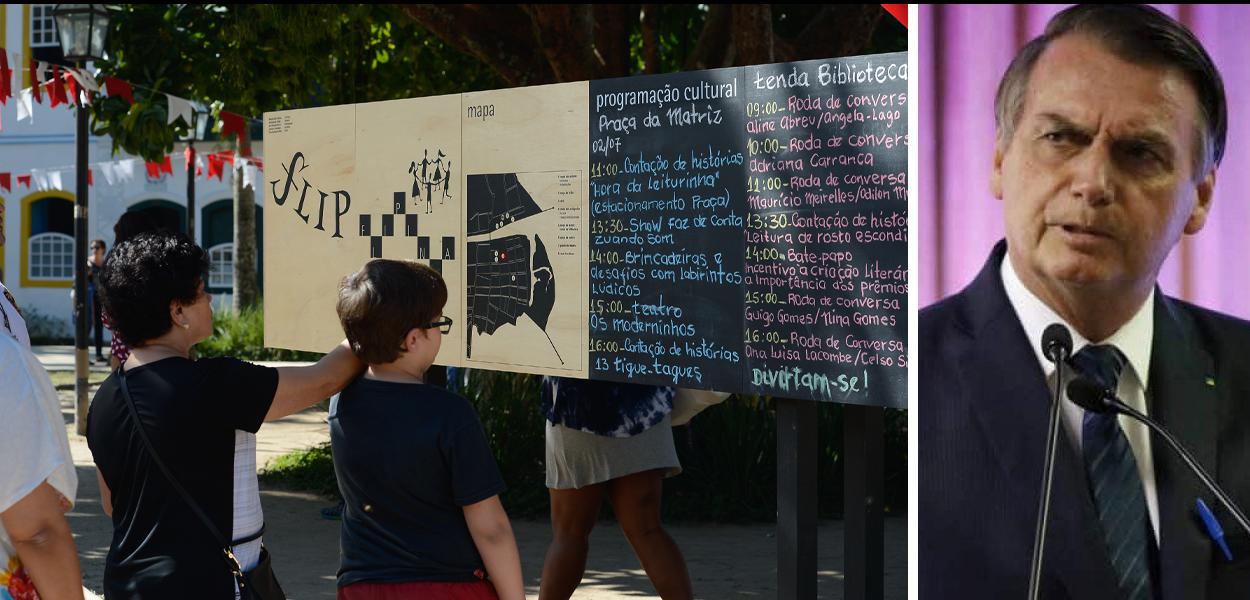 FLIP
FLIPINHA
mapa
programação cultural
Praça da Matriz
02/07
11:00-Contação de histórias
"hora da Leiturinha"
(estacionamento Praça)
13:30-Show faz de conta
zuando som
14:00-Brincadeiras e
desafios com labirintos
Lúdicos
15:00-teatro
Os moderninhos
16:00-Contação de histórias
13 tique-taques
tenda Biblioteca
09:00-Roda de convers
aline abreu/angela-Lago
10:00-Roda de convers
adriana Carranca
11:00-Roda de conversa
Maurício Meirelles/Odilon M
13:30-Contação de histó
Leitura de rosto escondi
14:00-Bate-papo
incentivo a criação Literár
a importância dos prêmios
15:00-Roda de conversa
Guigo Gomes/Nina Gomes
16:00-Roda de Conversa
Ana Luisa Lacombe/Celso Si
Divirtam-se!